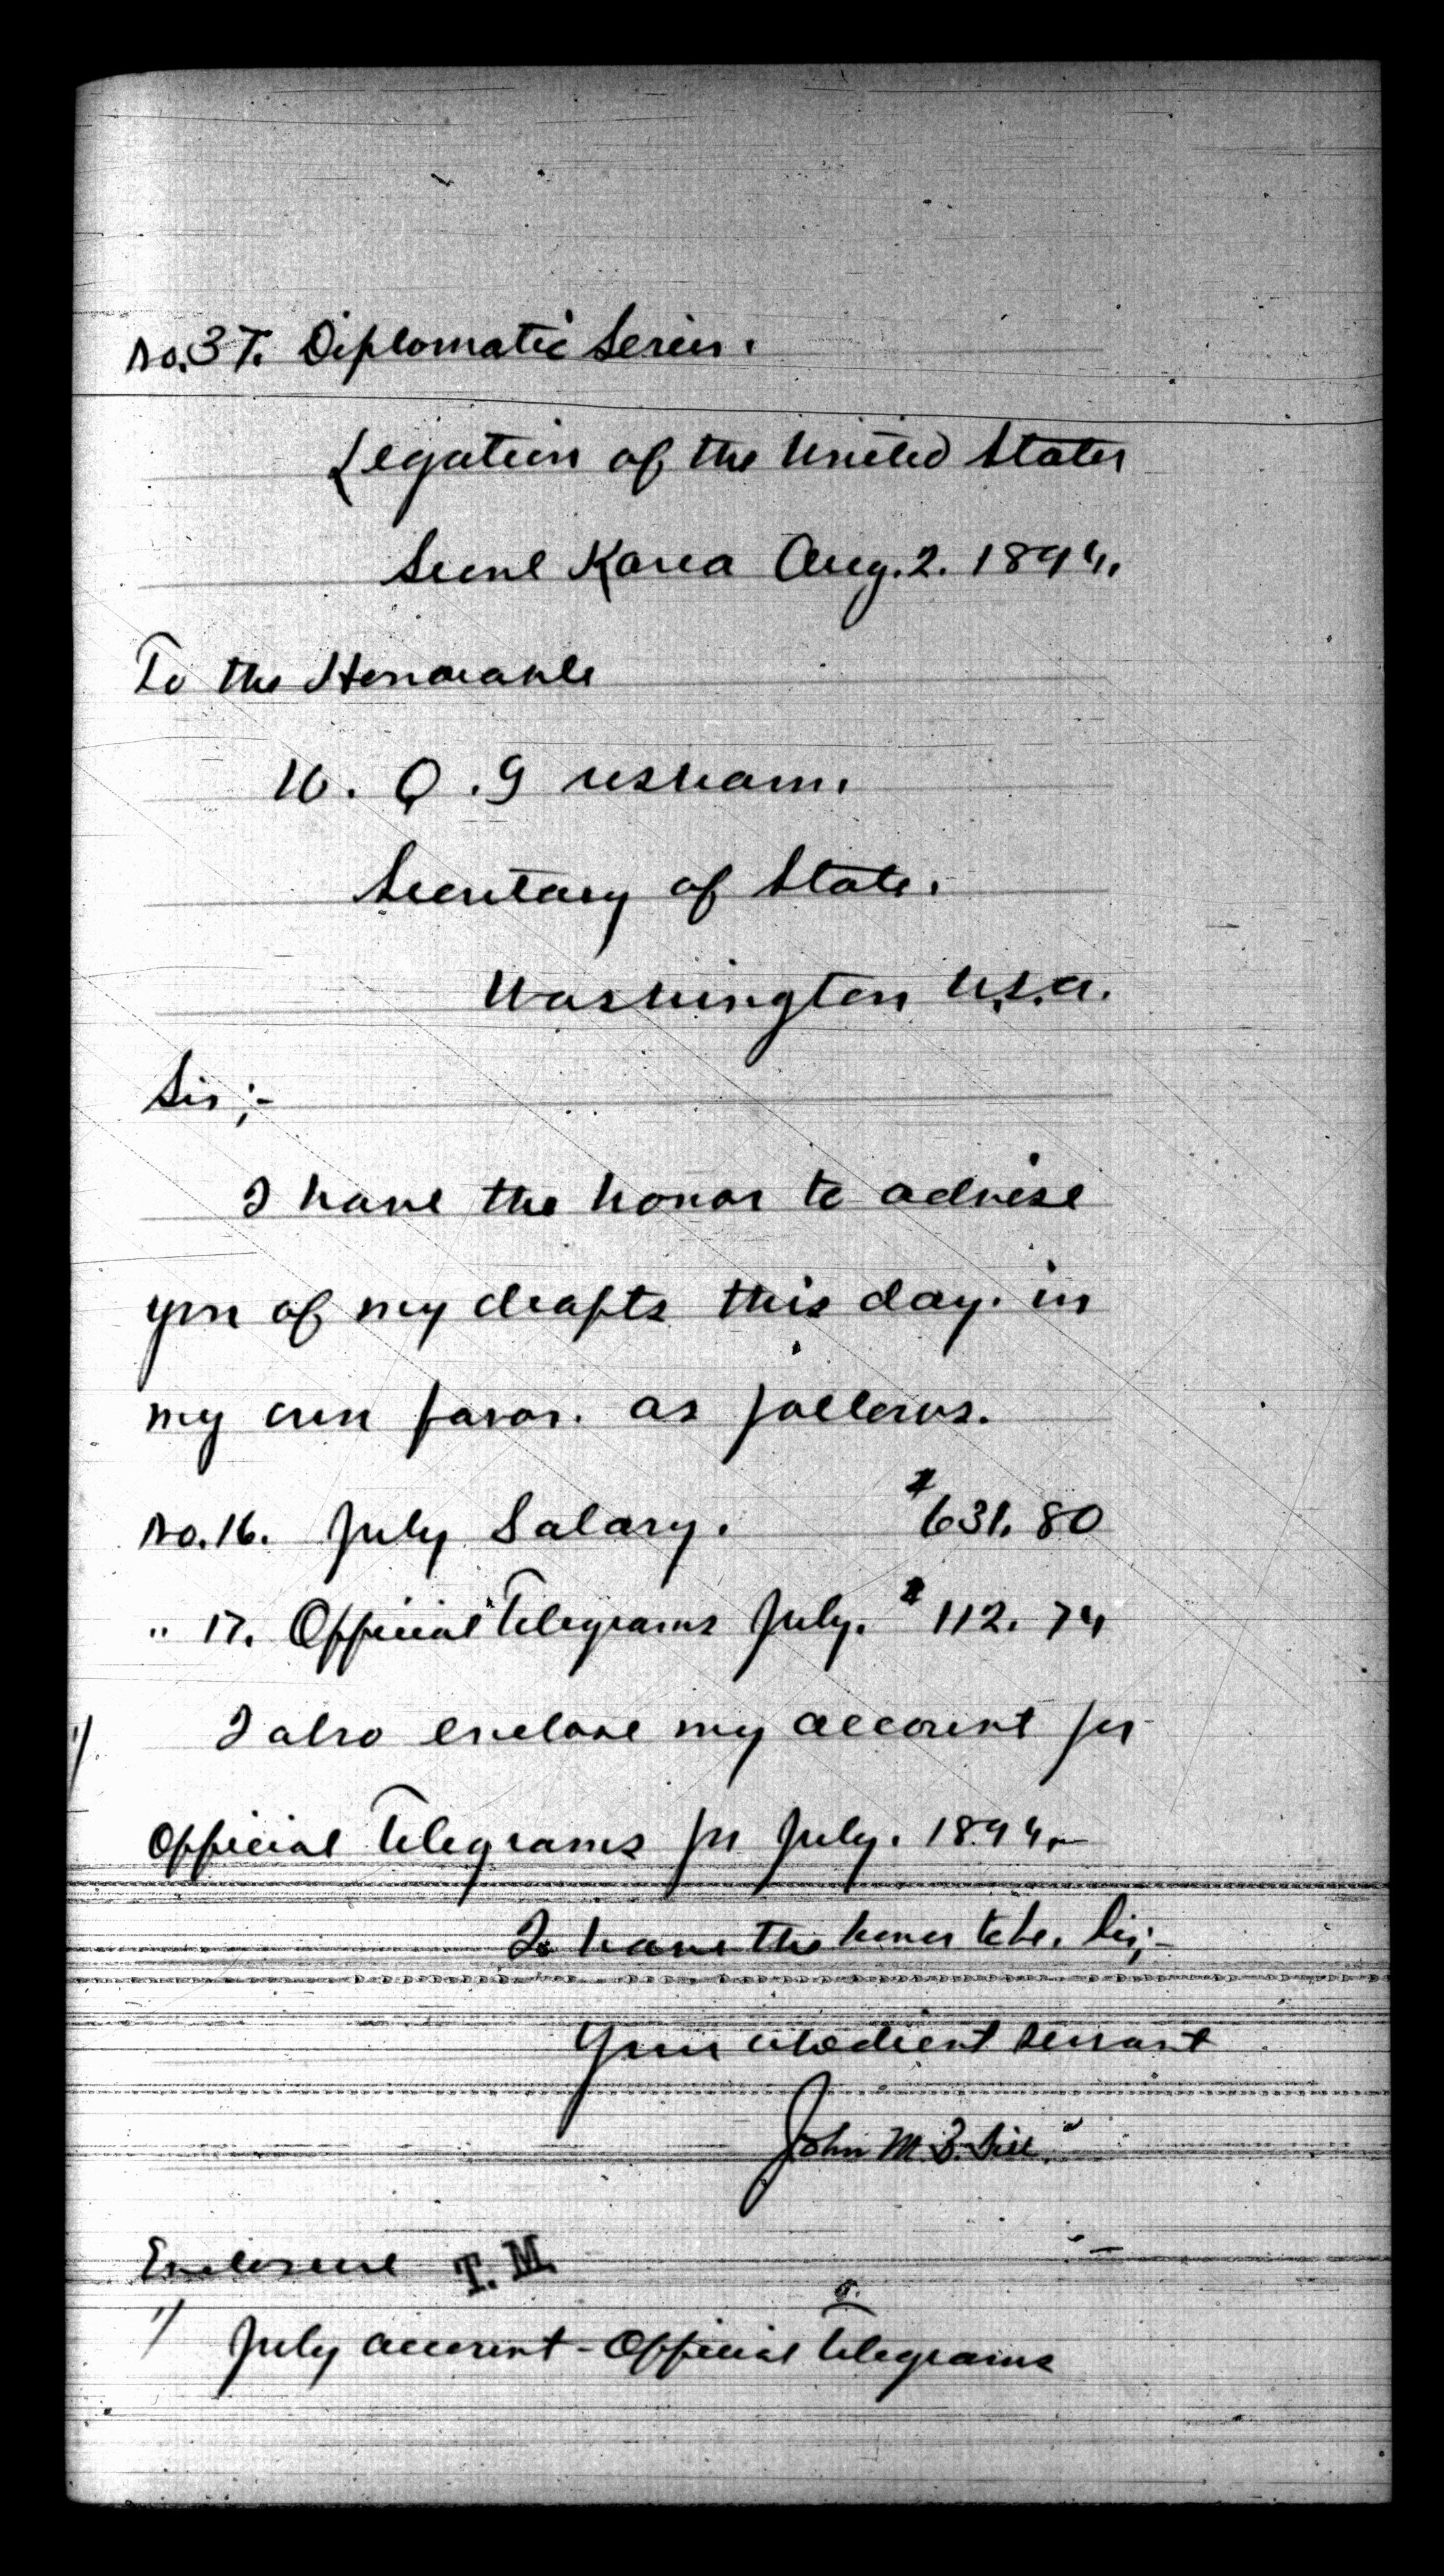 No. 37. Diplomatic Series.
Legation of the United States
Seoul Korea Aug. 2. 1894.
To the Honorable
W. Q. Gresham.
Secretary of State.
Washington U.S.A.
Sir;-
I have the honor to advise
you of my drafts this day. in
my own favor. as follows.
No. 16. July Salary. $631.80
" 17. Official Telegrams July. $112.74
1/ I also enclose my account for
Official Telegrams for July. 1894.-
I have the honor to be. Sir;-
Your obedient servant
John M. B. Sill.
Enclosure T. M.
1/ July account - Official Telegrams